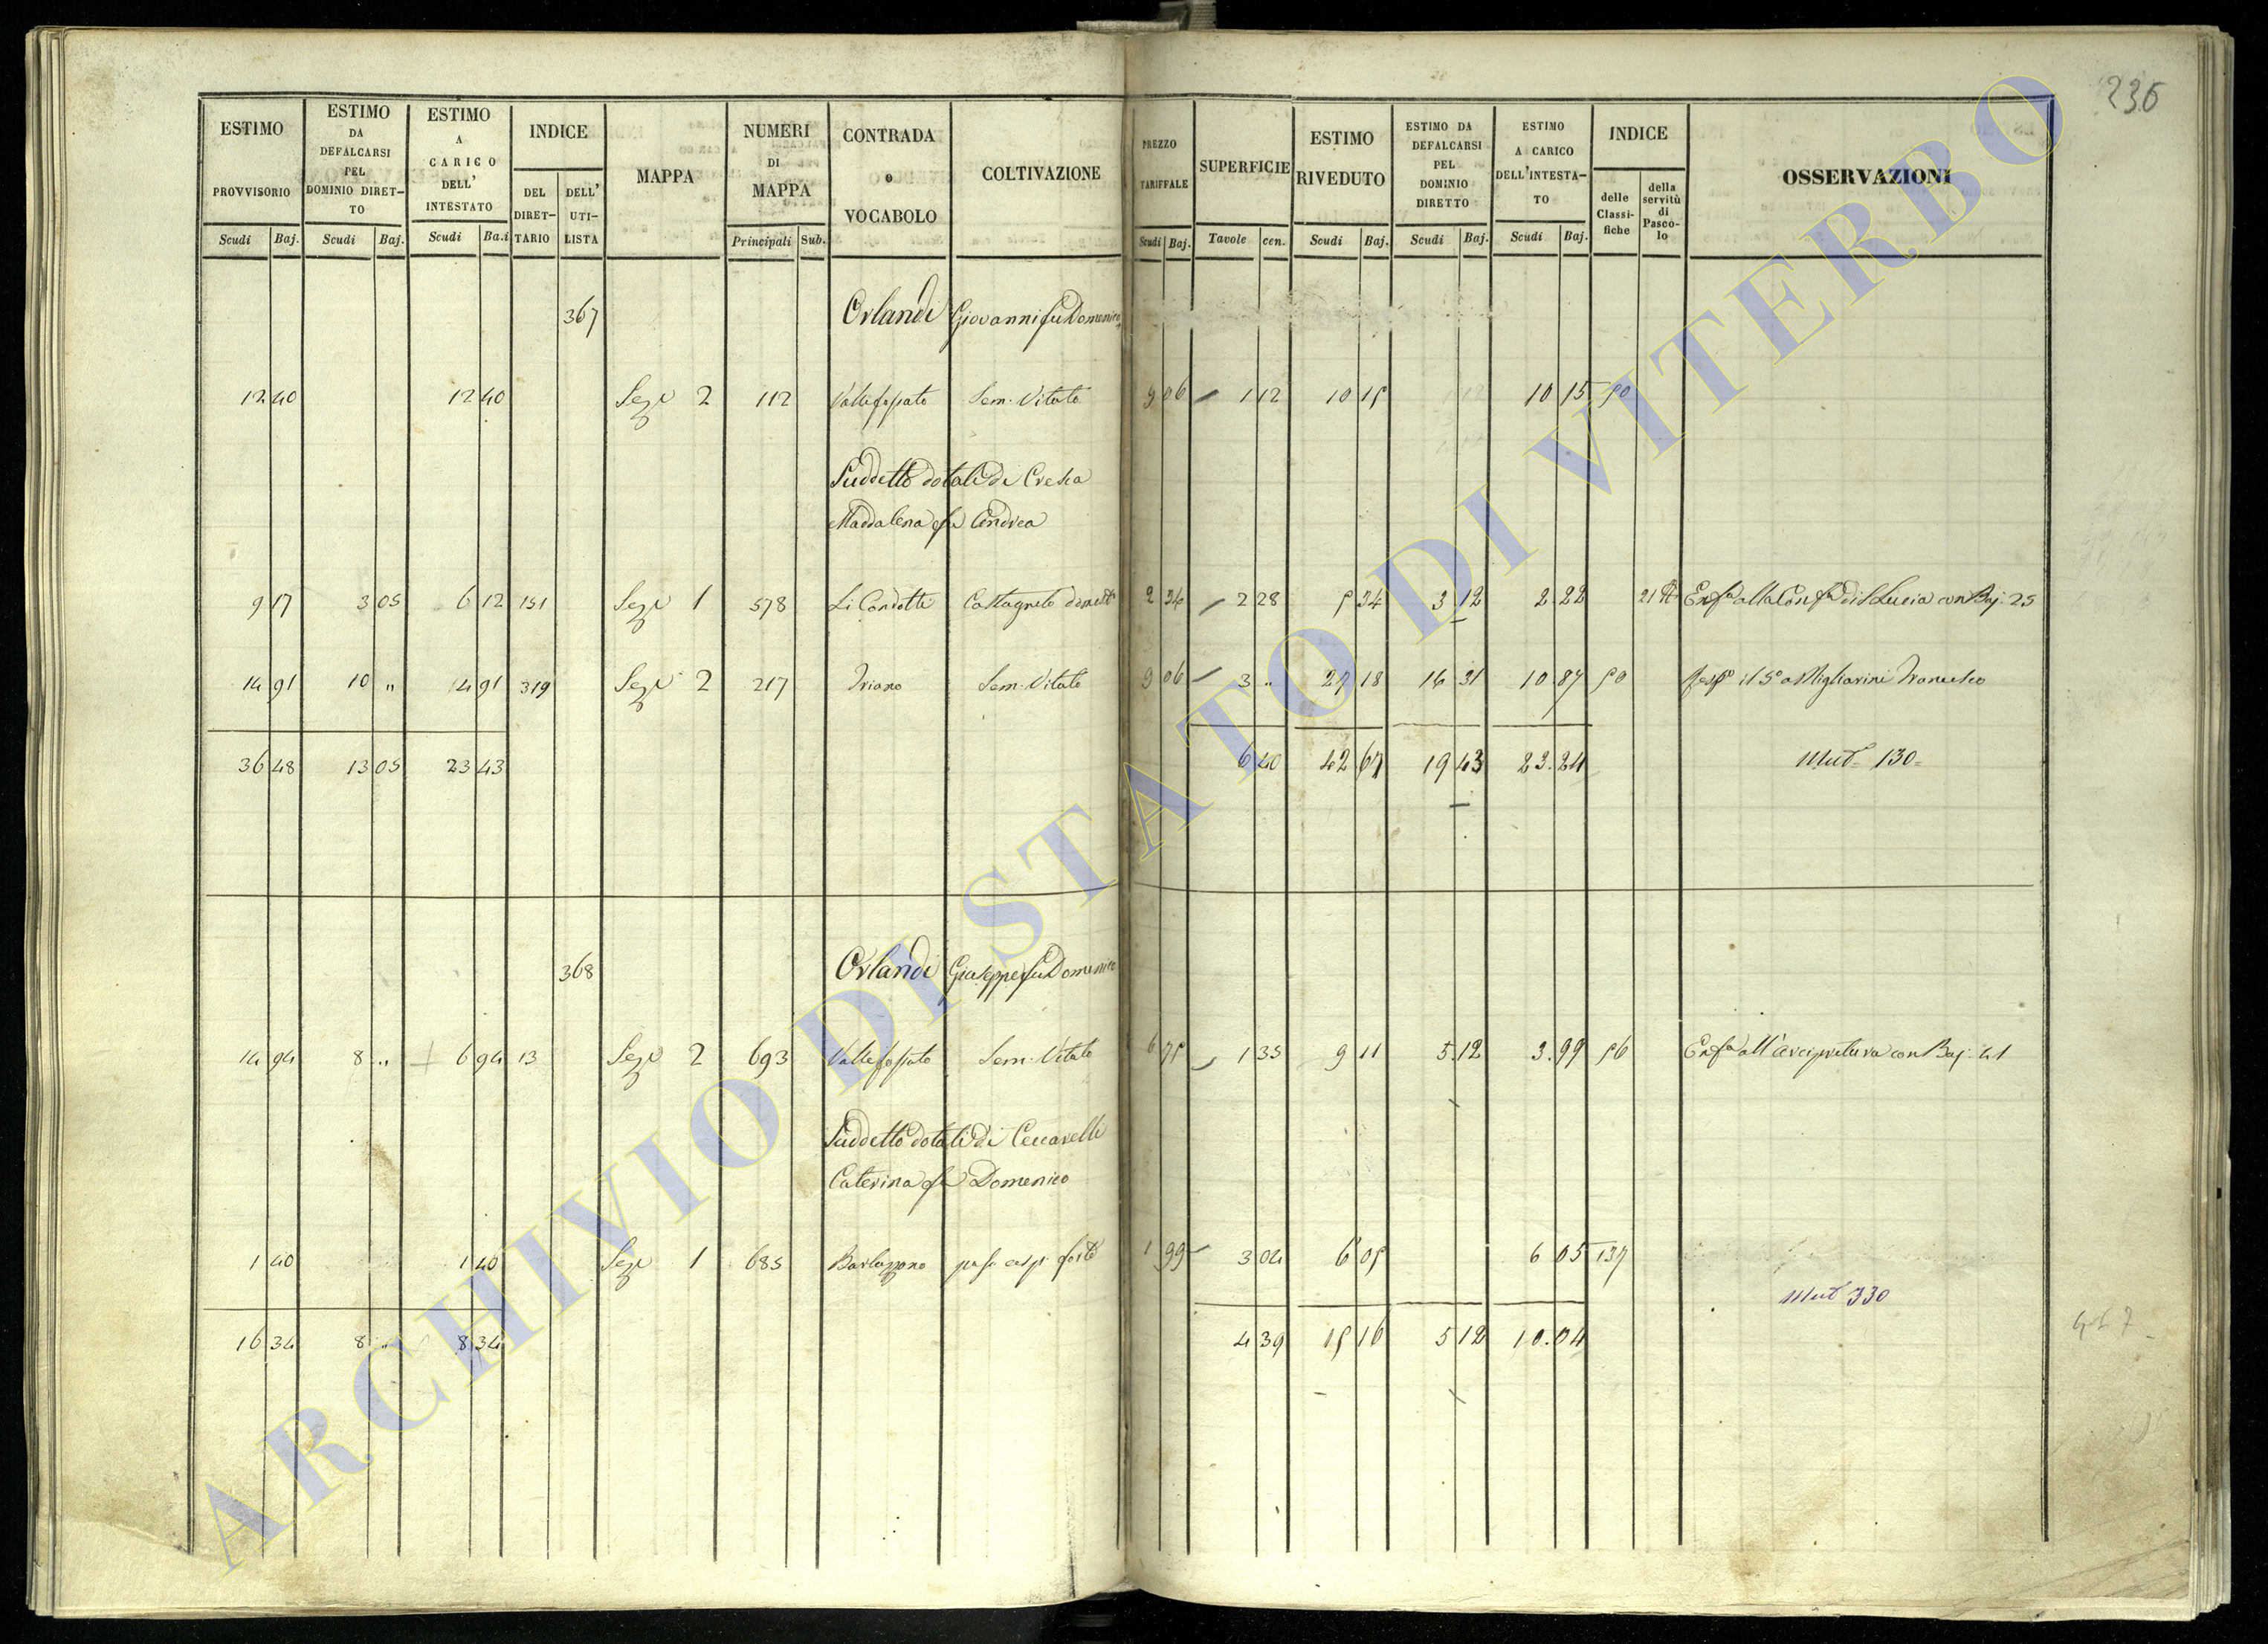 236
ESTIMO PROVVISORIO Scudi Baj.
ESTIMO DA DEFALCARSI PEL DOMINIO DIRET-TO Scudi Baj.
ESTIMO A CARICO DELL' INTESTATO Scudi Ba.i
INDICE DEL DIRET-TARIO DELL' UTI-LISTA
MAPPA
NUMERI DI MAPPA Principali Sub.
CONTRADA o VOCABOLO
COLTIVAZIONE
PREZZO TARIFFALE Scudi Baj.
SUPERFICIE Tavole cen.
ESTIMO RIVEDUTO Scudi Baj.
ESTIMO DA DEFALCARSI PEL DOMINIO DIRETTO Scudi Baj.
ESTIMO A CARICO DELL'INTESTA-TO Scudi Baj.
INDICE delle Classi-fiche della servitù di Pasco-lo
OSSERVAZIONI
367 Orlandi Giovanni fu Domenico
12 40 12 40 Seze 2 112 Vallefossato Sem. Vitato 9 06 1 12 10 15 10 15 50
Suddetto dotali di Cresca
Maddalena fu Andrea
9 17 3 05 6 12 151 Seze 1 578 Li Condotti Castagneto 2 34 2 28 5 34 3 12 2 22 21 Enfa alla Confa di S Lucia con Baj. 25
14 91 10 " 4 91 319 Seze 2 217 Sem. Vitato 9 06 3 " 27 18 16 31 10 87 50 Migliarini Francesco
36 48 13 05 23 43 6 40 42 67 19 43 23.24 Mut. 130
368 Orlandi Giuseppe fu Domenico
14 94 8 " 6 94 13 Seze 2 693 Vallefossato Sem. Vitato 6 75 1 35 9 11 5.12 3.99 56 Enfa all'arcipretura con Baj. 41
Suddetto dotali di Ceccarelli
Caterina fu Domenico
1 40 1 40 Seze 1 685 Barlozzano pas. cesp. forte 1 99 3 04 6 05 6 05 137
Mut 330
16 34 8 " 8 34 4 39 15 16 5 12 10.04
ARCHIVIO DI STATO DI VITERBO